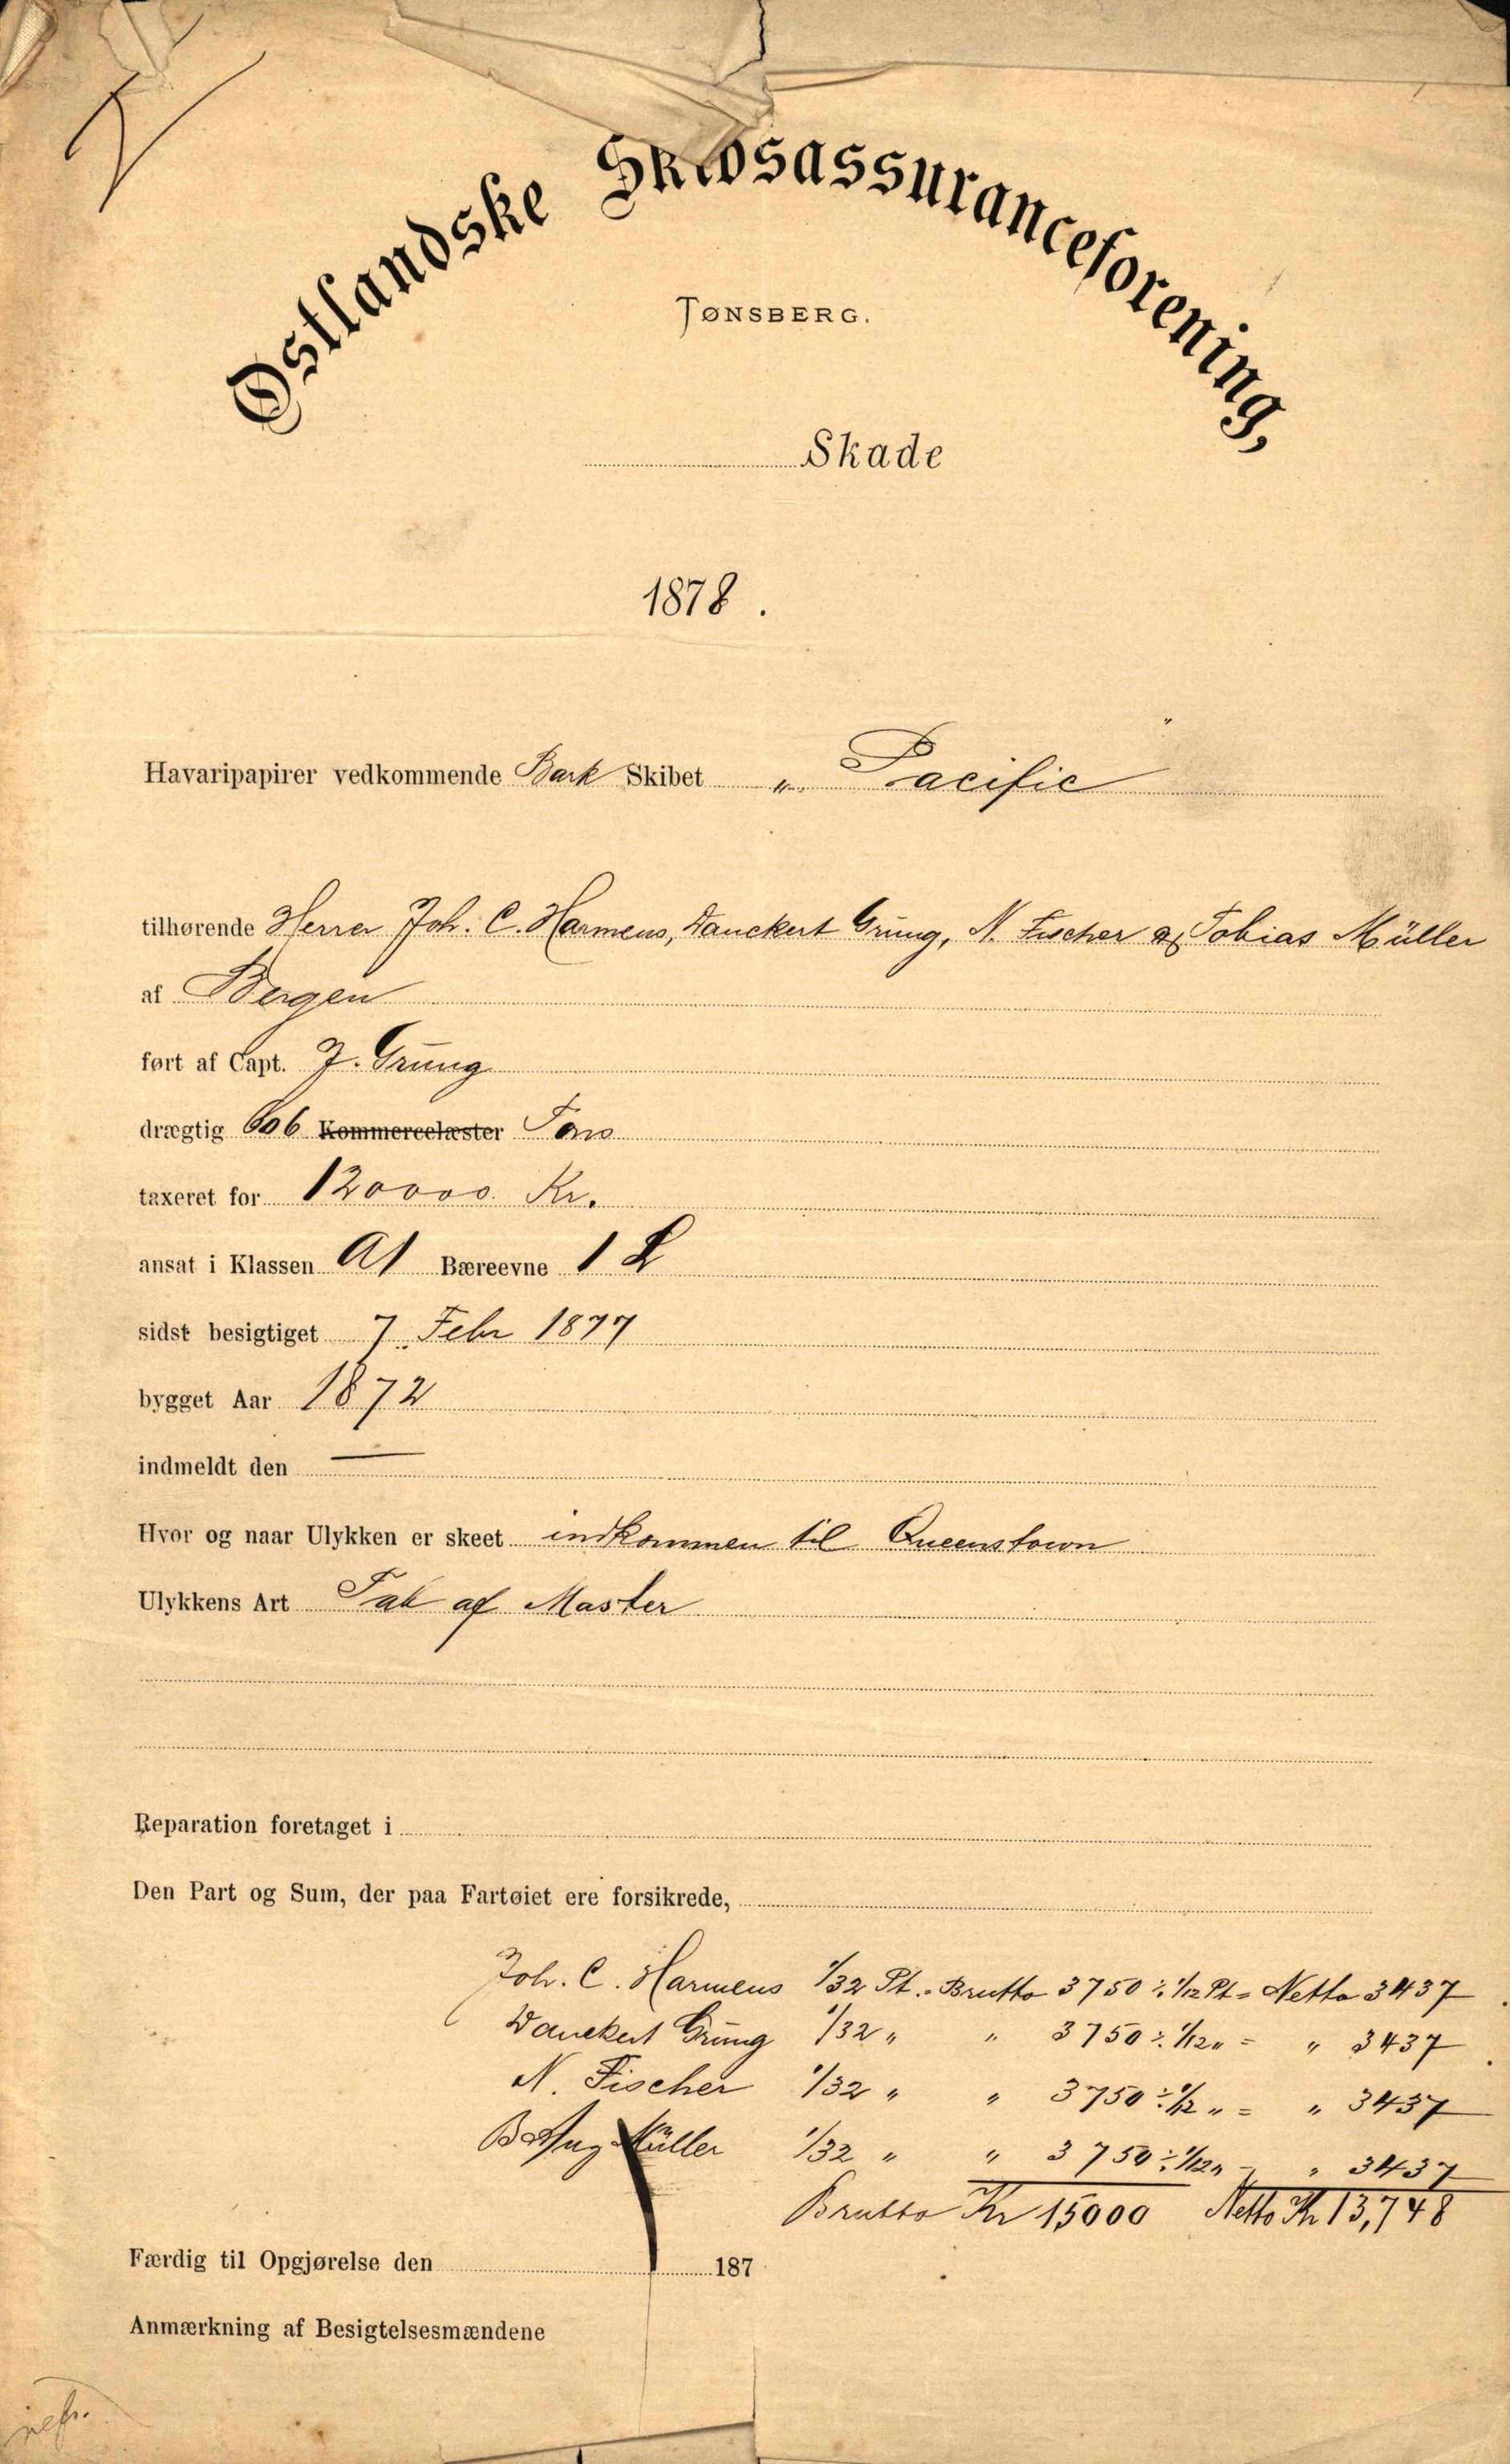 Østlandske Skibsassuranceforening,
TØNSBERG.
Skade
1878.
Havaripapirer vedkommende Bark Skibet „ Pacific "
tilhørende Herrer Joh. C. Harmens, Danckert Grüng, N. Fischer og Tobias Müller
af Bergen
ført af Capt. J. Grüng
drægtig 606 Kommercelæster Tons
taxeret for 120000 Kr.
ansat i Klassen A1 Bæreevne 1 L
sidst besigtiget 7 Febr 1877
bygget Aar 1872
indmeldt den —
Hvor og naar Ulykken er skeet indkommen til Queenstown
Ulykkens Art Tab af Master
Reparation foretaget i
Den Part og Sum, der paa Fartøiet ere forsikrede,
Joh. C. Harmens 1/32 Pt. Brutto 3750 ÷ 1/12 Pt = Netto 3437
Danckert Grüng 1/32 „ „ 3750 ÷ 1/12 „ = „ 3437
N. Fischer 1/32 „ „ 3750 ÷ 1/12 „ = „ 3437
Müller 1/32 „ „ 3750 ÷ 1/12 „ = „ 3437
Brutto Kr 15000 Netto Kr 13,748
Færdig til Opgjørelse den 187
Anmærkning af Besigtelsesmændene